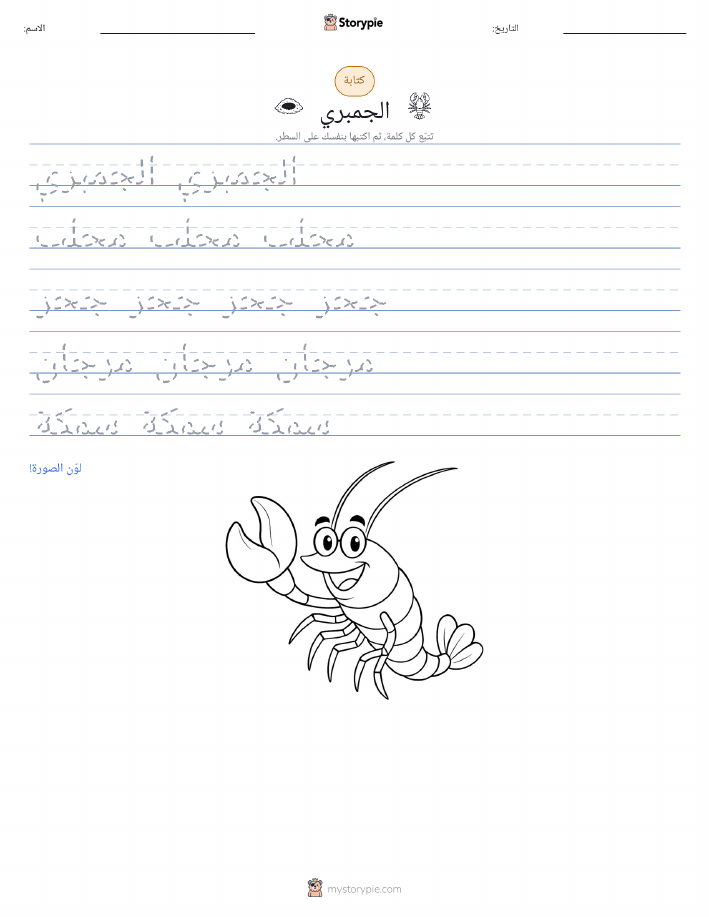 الاسم:
Storypie
التاريخ:
كتابة
الجمبري
تتبّع كل كلمة، ثم اكتبها بنفسك على السطر.
الجمبري الجمبري
مخلب مخلب مخلب
مرجان مرجان مرجان
سمكة سمكة سمكة
لوّن الصورة!
mystorypie.com